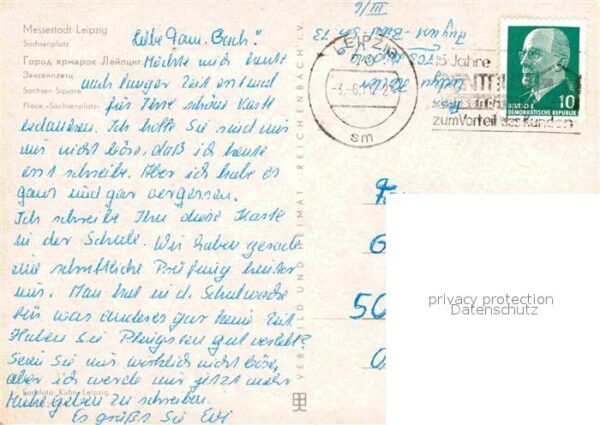 Messestadt Leipzig
Sachsenplatz
Город ярмарок Лейпциг
Заксенплетц
Sachsen Square
Place «Sachsenplatz»
Liebe Fam. Buch!
Möchte mich heute
nach langer Zeit erstmal
für Ihre schöne Karte
bedanken. Ich hoffe Sie sind mir
nur nicht böse, daß ich heute
erst schreibe. Aber ich habe es
ganz und gar vergessen.
Ich schreibe Ihnen diese Karte
in der Schule. Wir haben gerade
eine schriftliche Prüfung hinter
uns. Man hat in d. Schulwoche
für was anderes gar keine Zeit.
Haben Sie Pfingsten gut verlebt?
Seien Sie mir wirklich nicht böse,
aber ich werde mir jetzt mehr
Mühe geben zu schreiben.
Es grüßt Sie Evi
Farbfoto: Kühn, Leipzig
VEB BILD UND HEIMAT REICHENBACH I.V.
LEIPZIG
sm
15 Jahre
zum Vorteil des Kunden
DEUTSCHE
DEMOKRATISCHE REPUBLIK
10
703 Leipzig
73
50
privacy protection
Datenschutz